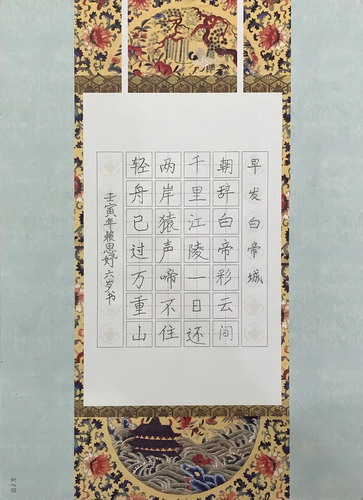 早发白帝城
朝辞白帝彩云间
千里江陵一日还
两岸猿声啼不住
轻舟已过万重山
壬寅年赖思妤六岁书